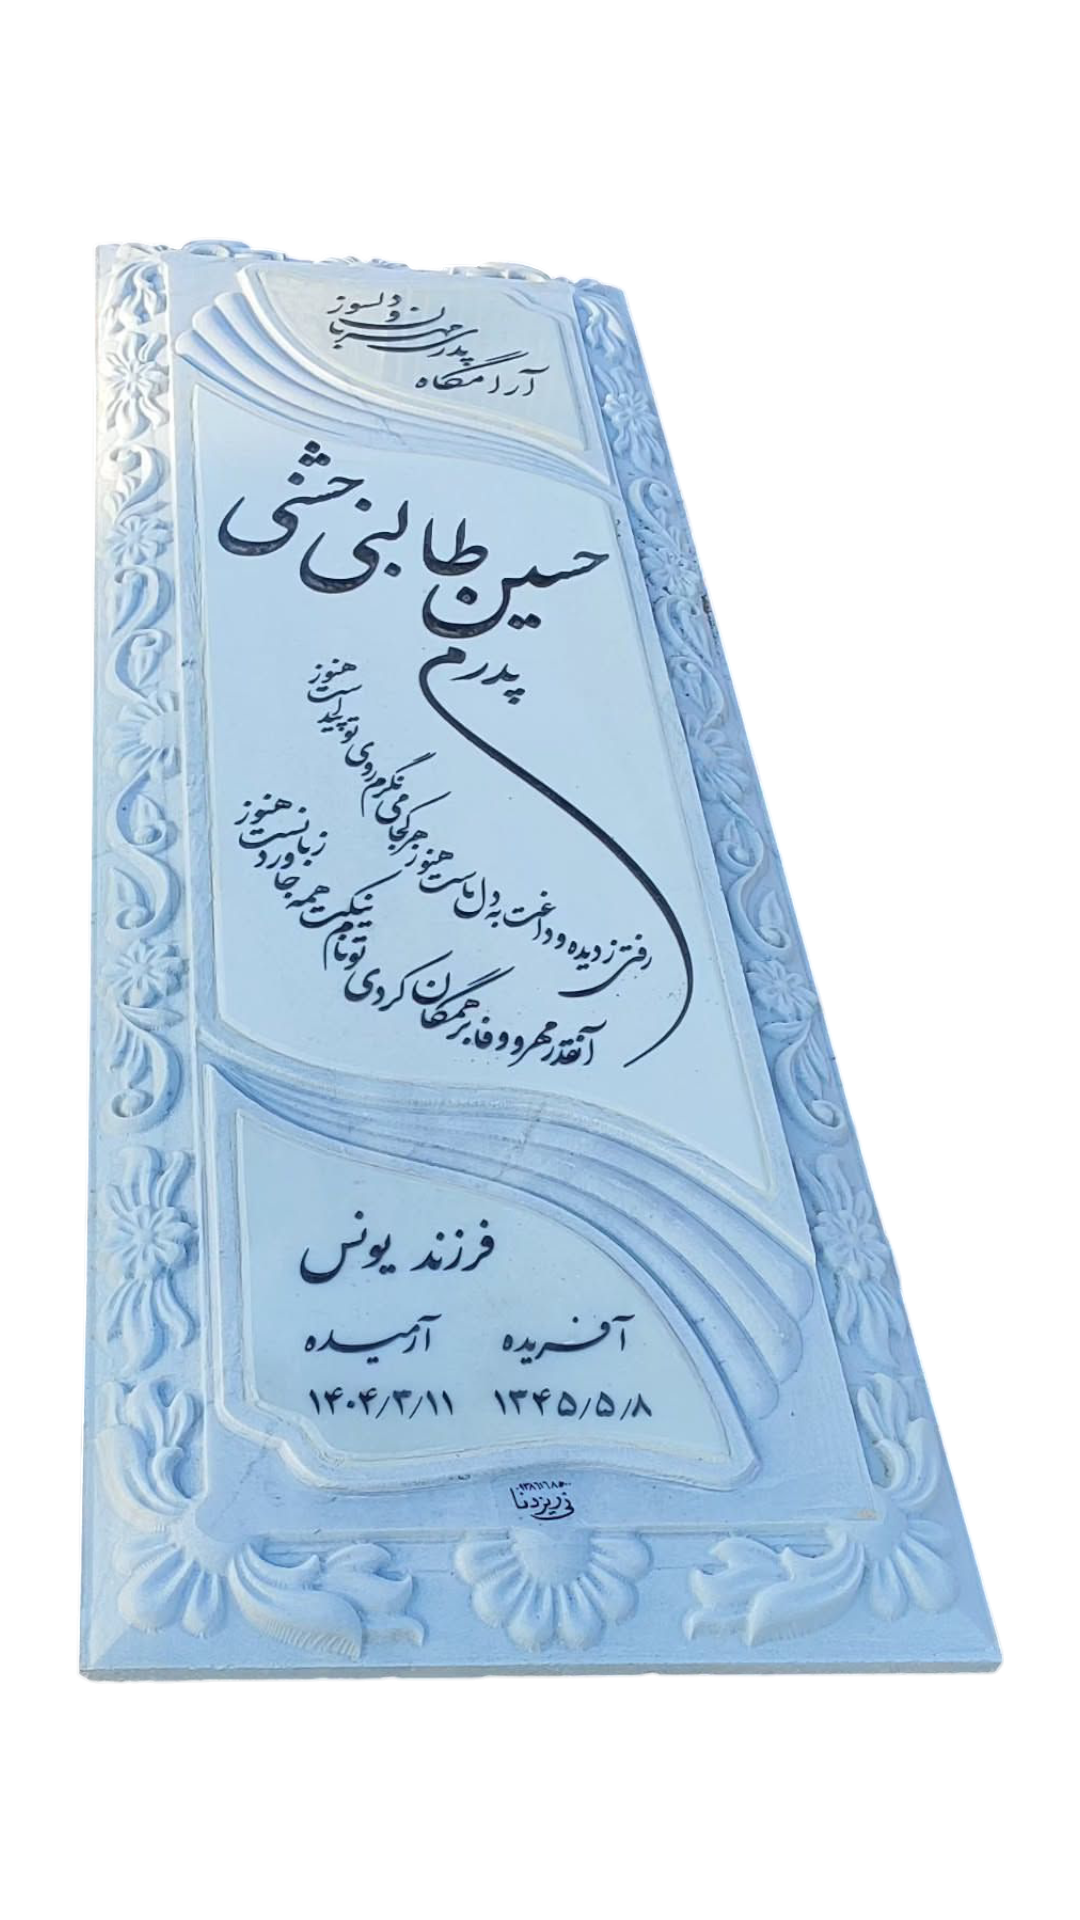 آرامگاه
پدری مهربان و دلسوز
حسین طالبی خشتی
پدرم
رفتی ز دیده و داغت به دل ماست هنوز
هر کجا می نگرم روی تو پیداست هنوز
آنقدر مهر و وفا بر همگان کردی تو
نام نیکت همه جا ورد زبانست هنوز
فرزند یونس
آفریده
آرمیده
۱۳۴۵/۵/۸
۱۴۰۴/۳/۱۱
نی ریز دنا